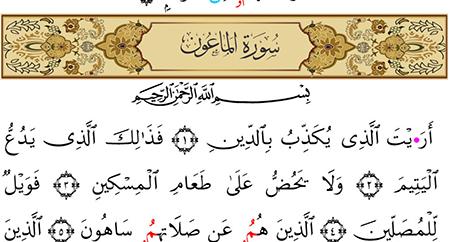 سُورَةُ المَاعُونِ
بِسْمِ ٱللَّهِ ٱلرَّحْمَٰنِ ٱلرَّحِيمِ
أَرَيْتَ ٱلَّذِى يُكَذِّبُ بِٱلدِّينِ ﴿١﴾ فَذَٰلِكَ ٱلَّذِى يَدُعُّ
ٱلْيَتِيمَ ﴿٢﴾ وَلَا يَحُضُّ عَلَىٰ طَعَامِ ٱلْمِسْكِينِ ﴿٣﴾ فَوَيْلٌ
لِّلْمُصَلِّينَ ﴿٤﴾ ٱلَّذِينَ هُمُ عَن صَلَاتِهِمُ سَاهُونَ ﴿٥﴾ ٱلَّذِينَ